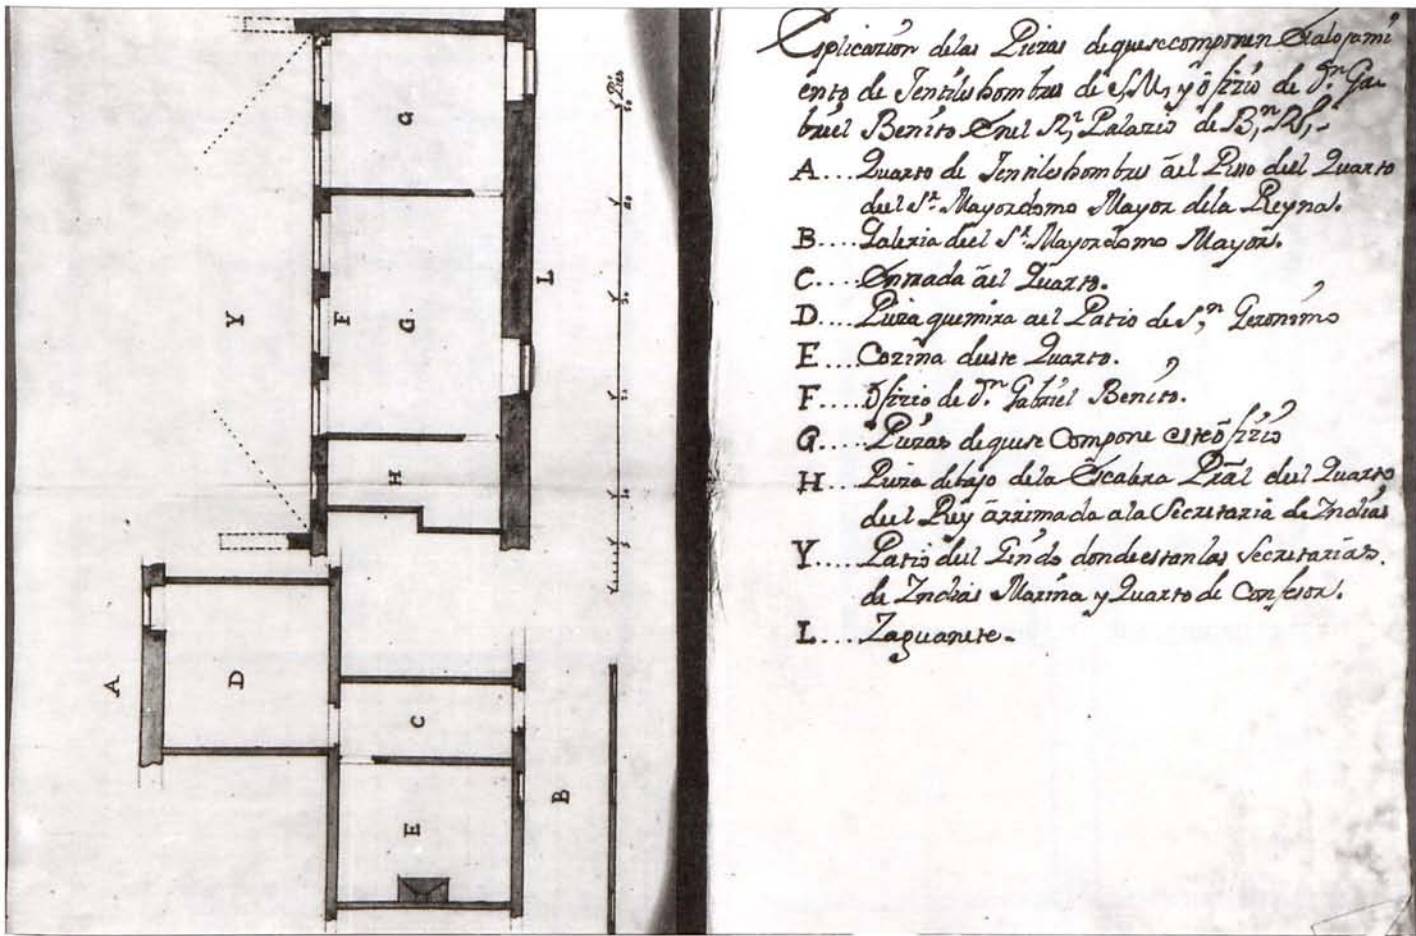 Esplicazion delas Piezas dequesecomponen Elalojami
ento de Jentileshombres de S.M. y ôfizio de Dn. Ga
briel Benito Enel Rl. Palazio de Bn. Ro.
A.... Quarto de Jentileshombres âel Piso deel Quarto
deel Sr. Mayordomo Mayor dela Reyna.
B.... Galeria deel Sr. Mayordomo Mayor.
C.... Entrada âel Quarto.
D.... Pieza quemira ael Patio de Sn. Geronimo
E.... Cozina deeste Quarto.
F.... ôfizio de Dn. Gabriel Benito.
G.... Piezas dequese Compone esteôfizio
H... Pieza debajo dela Escalera Pral deel Quarto
deel Rey ârrimada ala Secretaria de Indias
Y... Patio deel donde estan las Secretarias
de Indias Marina y Quarto de Confesor.
L.... Zaguanete.
G
Pies
Y
F
G.
L
H
A
D
C
B
E